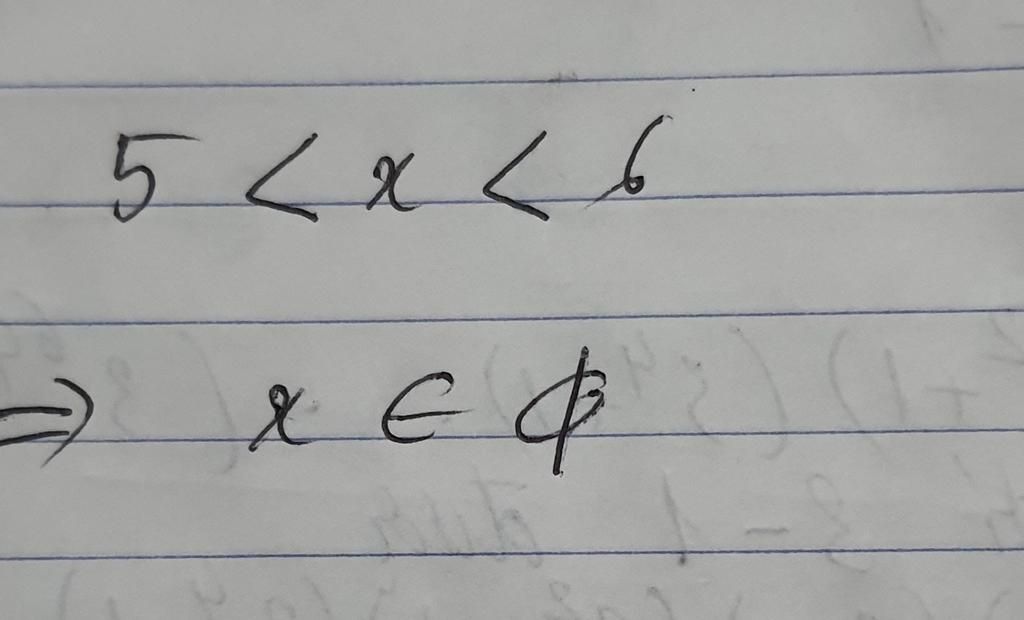 5 < x < 6
⇒ x ∈ ϕ